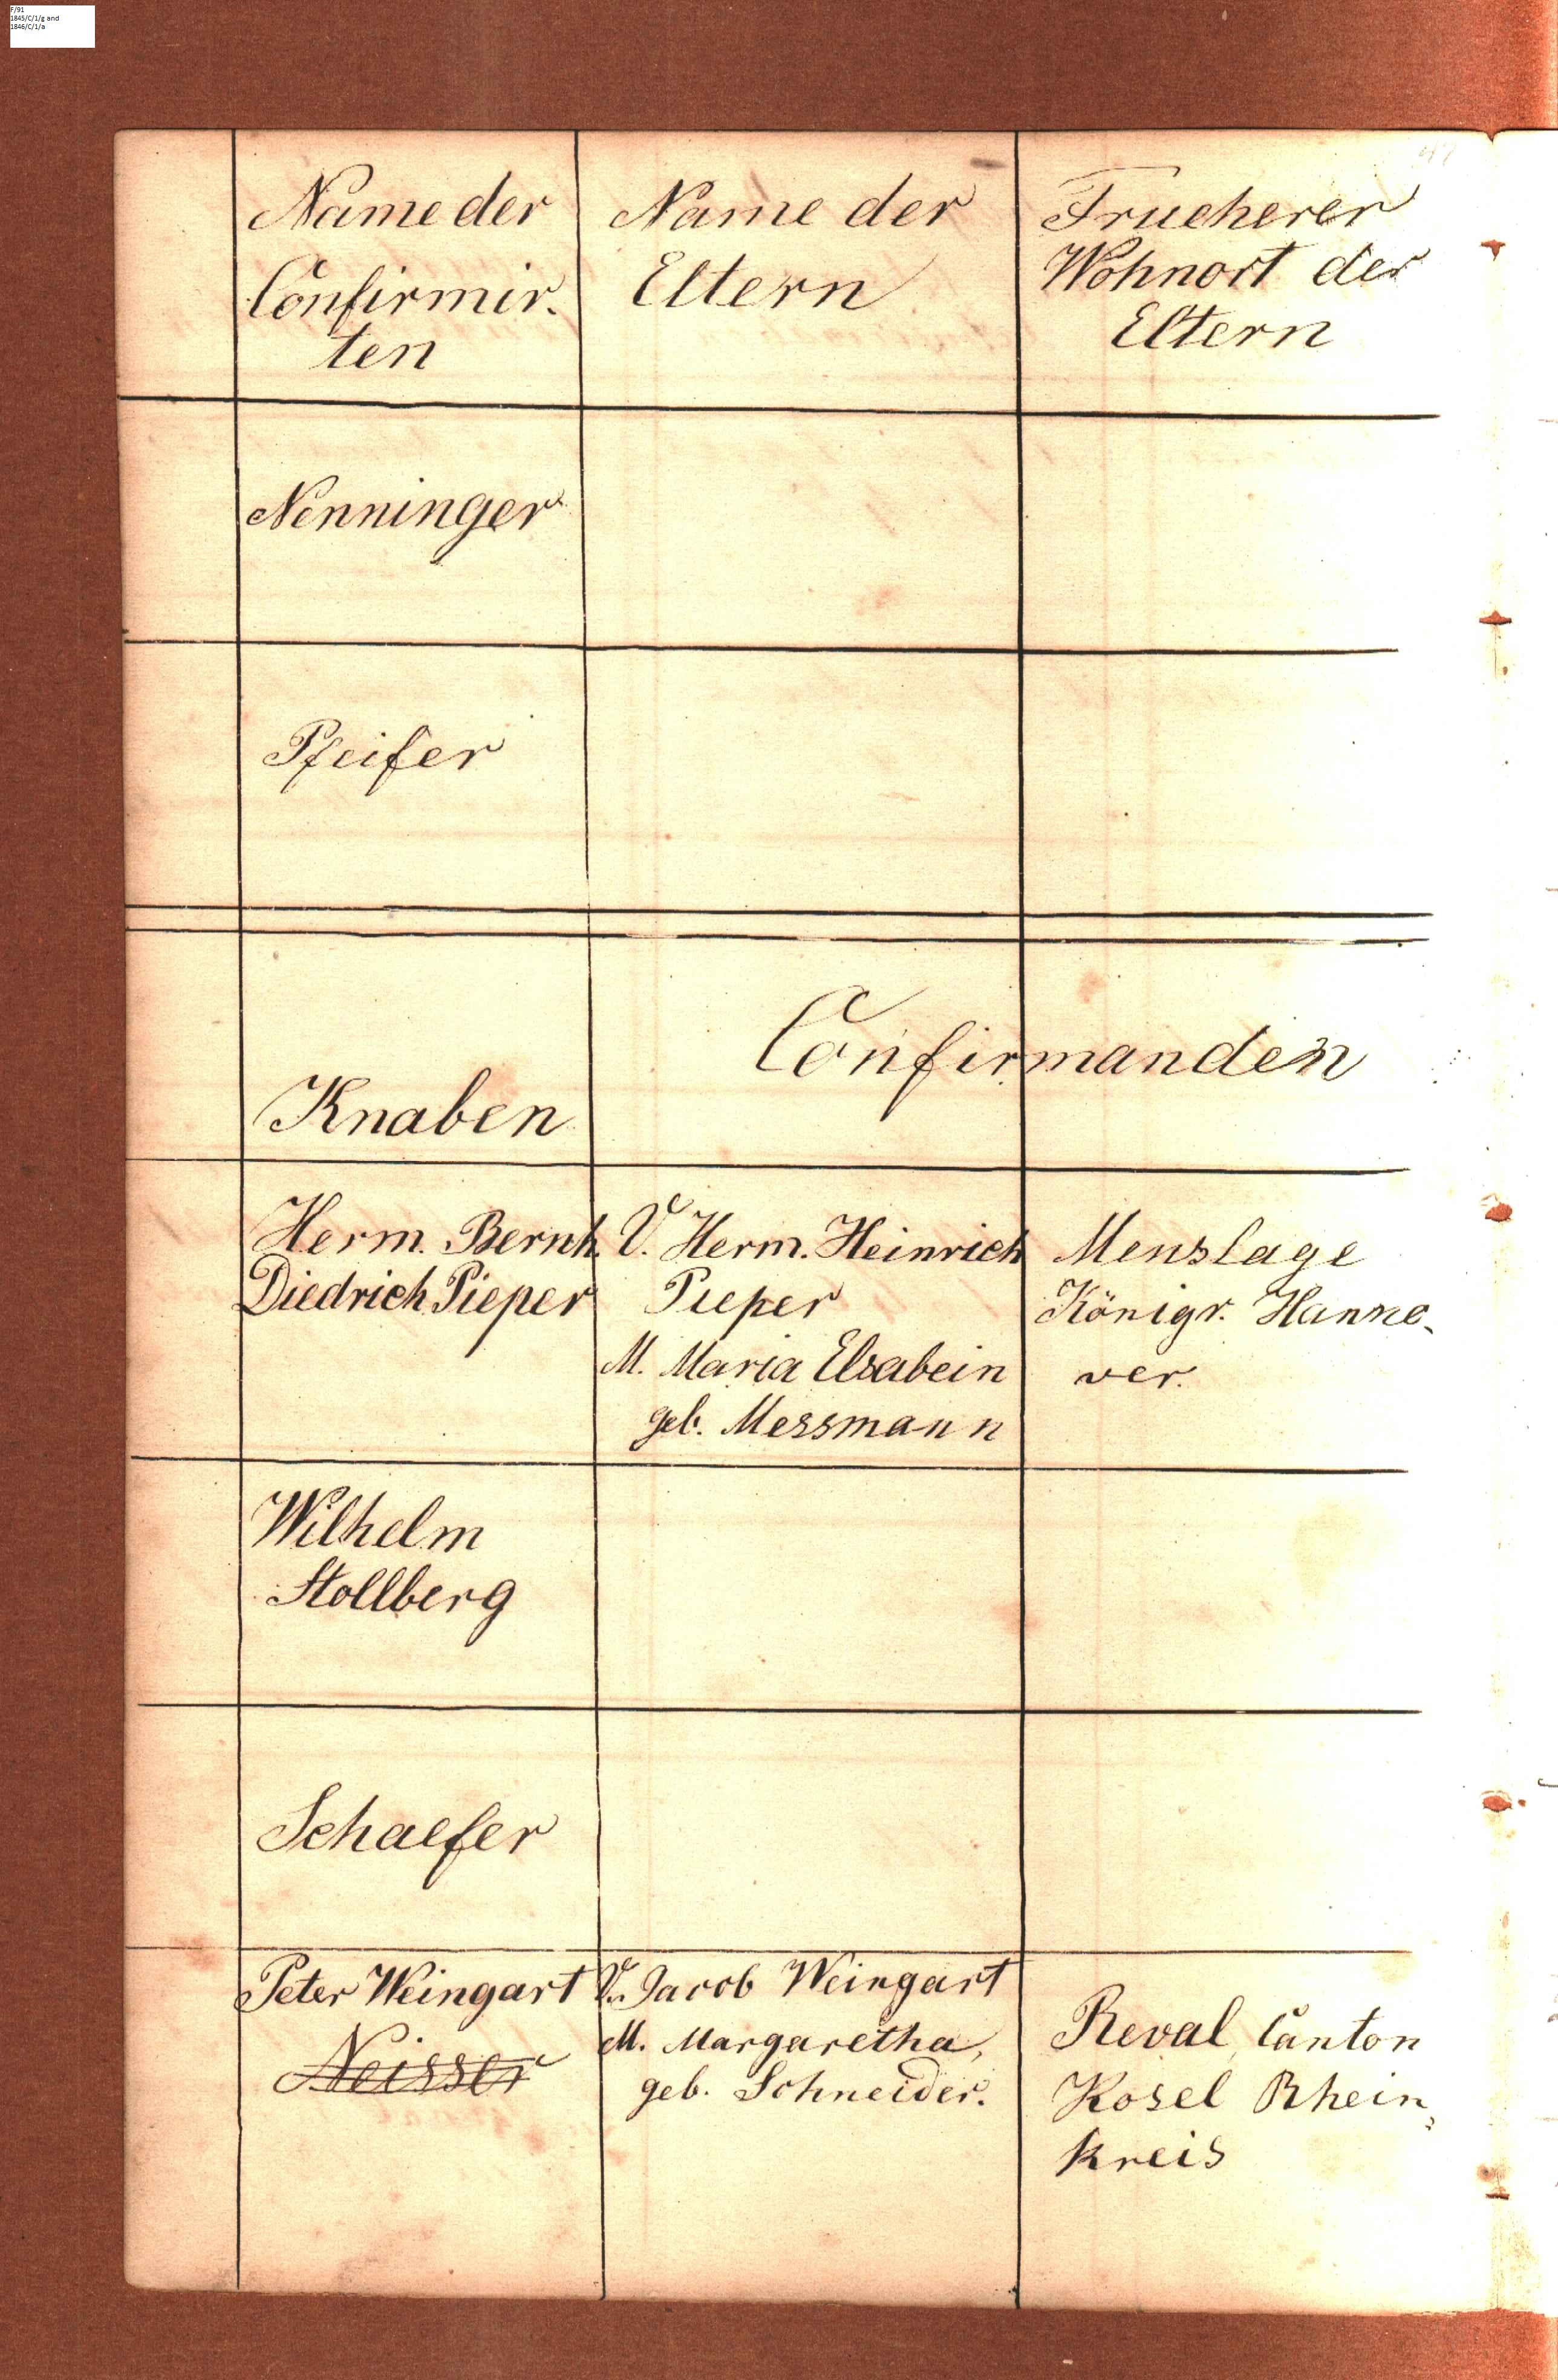 F/91
1845/C/1/g and
1846/C/1/a
Name der
Confirmir.
ten
Name der
Eltern
Frueherer
Wohnort der
Eltern
Nenninger
Pfeifer
Confirmanden
Knaben
Herm. Bernh.
Diedrich Pieper
V. Herm. Heinrich
Pieper
M. Maria Elsabein
geb. Messmann
Menslage
Königr. Hanno-
ver.
Wilhelm
Stollberg
Schaefer
Peter Weingart
Neisser
V. Jacob Weingart
M. Margaretha,
geb. Schneider.
Reval, Canton
Kosel Rhein,
kreis